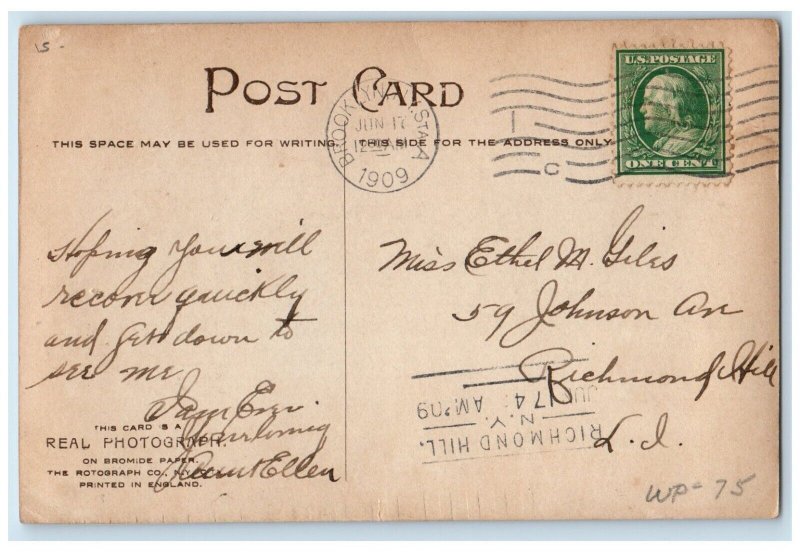 POST CARD
THIS SPACE MAY BE USED FOR WRITING. THIS SIDE FOR THE ADDRESS ONLY
BROOKLYN, N.Y. STA. A
JUN 17
1909
C
U.S. POSTAGE
ONE CENT
Hoping you will
recover quickly
and get down to
see me
I am Ever
Your loving
Aunt Ellen
Miss Ethel M. Giles
59 Johnson Av
Richmond Hill
L.I.
RICHMOND HILL,
N.Y.
JUN 17 4 AM '09
THIS CARD IS A
REAL PHOTOGRAPH
ON BROMIDE PAPER.
THE ROTOGRAPH CO., N.Y.
PRINTED IN ENGLAND.
WP-75